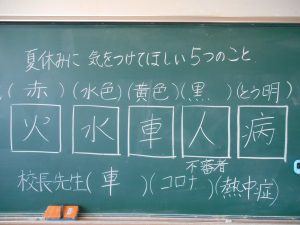 夏休みに 気をつけてほしい5つのこと
(赤)(水色)(黄色)(黒)(とう明)
火 水 車 人 病
不審者
校長先生(車)(コロナ)(熱中症)